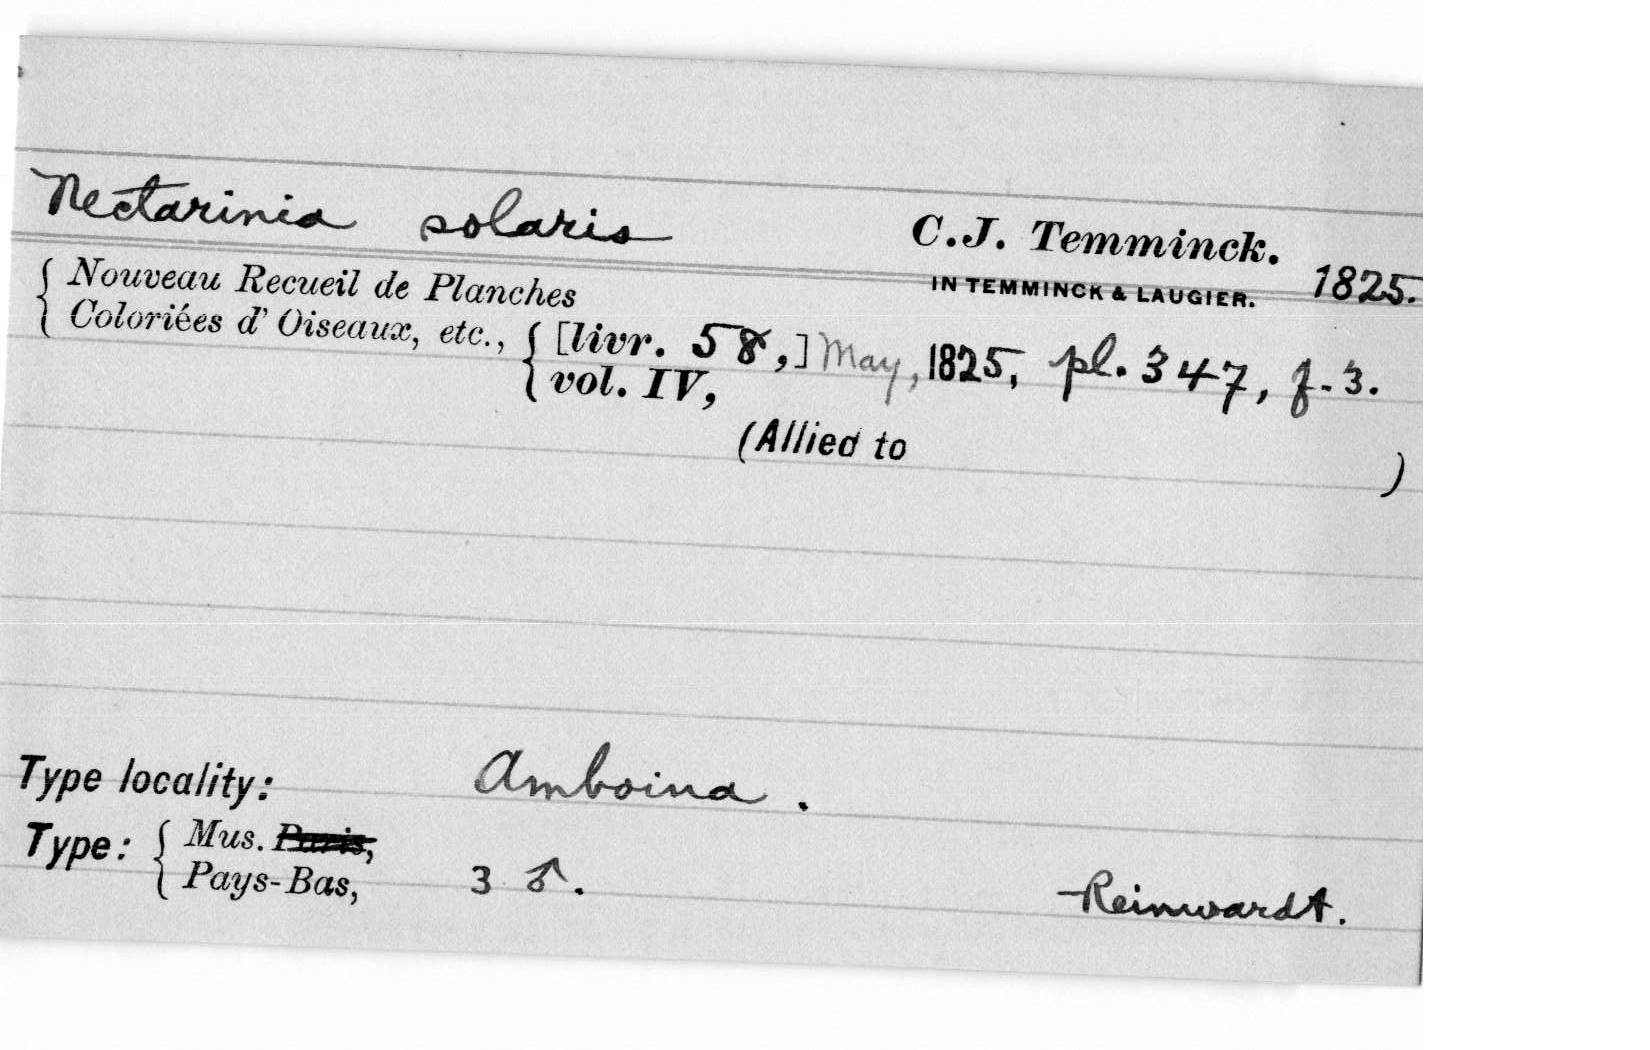 Nectarinia solaris C.J. Temminck.
IN TEMMINCK & LAUGIER. 1825.
{ Nouveau Recueil de Planches
Coloriées d' Oiseaux, etc., { [livr. 58,] May, 1825, pl. 347, f. 3.
vol. IV,
(Allied to )
Type locality: Amboina.
Type: { Mus. Paris,
Pays-Bas, 3 ♂. Reinwardt.